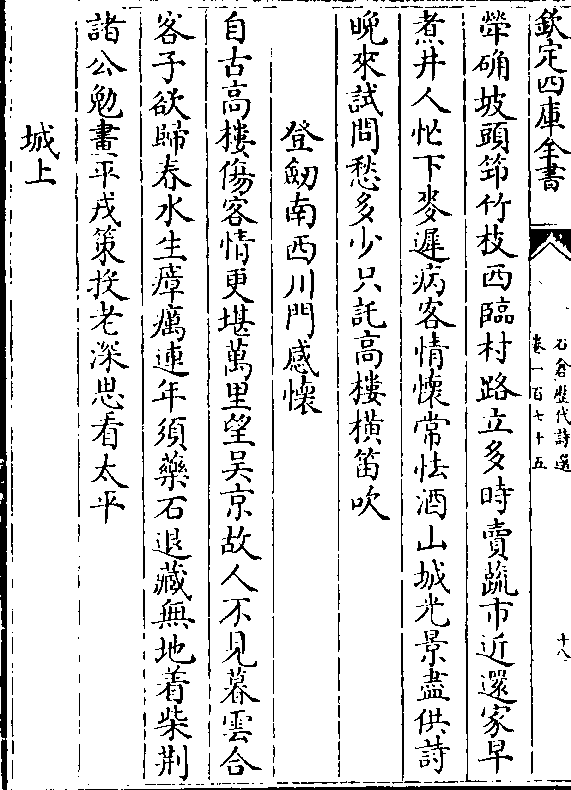 欽定四庫全書
石倉歷代詩選
卷一百七十五
十八
犖确坡頭筇竹枝西臨村路立多時賣蔬市近還家早
煮井人忙下麥遲病客情懷常怯酒山城光景盡供詩
晚來試問愁多少只託高樓橫笛吹
登劒南西川門感懷
自古高樓傷客情更堪萬里望吳京故人不見暮雲合
客子欲歸春水生瘴癘連年須藥石退藏無地着柴荆
諸公勉畫平戎策投老深思看太平
城上